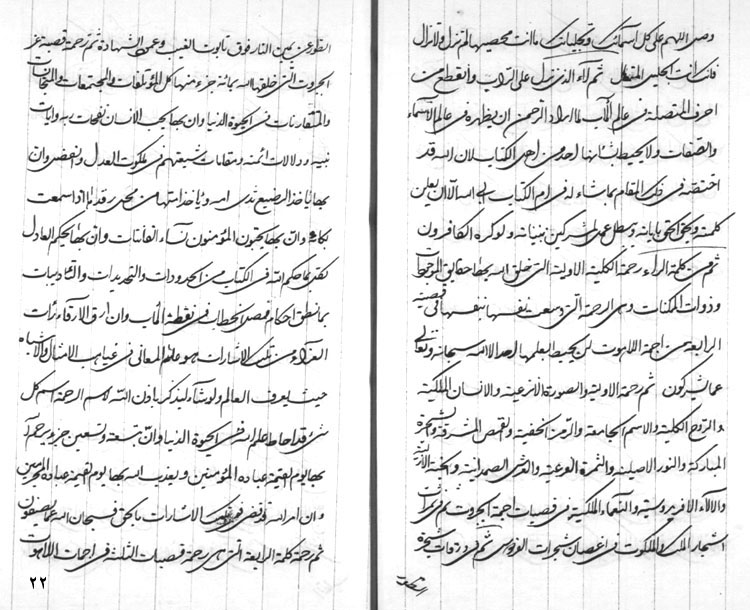 وصل اللهم على كل اسمائك وتجلياتك ما انت محصيها لم تزل ولا تزال
فانك انت الجليل المتعال ثم آلاء الذي نزل على التراب وانقطع من
احرف المتصلة في عالم الآب لما اراد الرحمن ان يظهره في عالم الاسماء
والصفات ولا يحيط بشانها احد من اهل الكتاب لان الله قد
اختصه في ذلك المقام بما شاء له في ام الكتاب الا ان يعلن
كلمته ويحق الحق باياته ويبطل عمل المشركين ولو كره الكافرون
ثم من كلمة الراء رحمة الكلية الاولية التي خلق الله بها حقايق الموجودات
وذوات الممكنات وهي الرحمة التي وسعت نفسها بنفسها في قصبته
الرابعة من اجمة اللاهوت لن يحيط بعلمها احد الا الله سبحانه وتعالى
عما يشركون ثم رحمة الاولية والصورة الانزعية والانسان الملكية
والروح الكلية والاسم الجامعة والرمز الخفية والقمص المشرقة والشجرة
المباركة والنور الاصلية والثمرة الفرعية والعرش الصمدانية
والالاء والنعماء الملكية في قصبات اجمة الجبروت ثم ثمرات
اشجار الملك والملكوت في اغصان شجرات الفردوس ثم في ورقات شجرة
الطور
الطور عن يمين النار فوق تابوت الغيب وعمق الشهادة ثم رحمة قصبة عز
الجبروت التي خلقها الله بمائة جزء منها كل المؤتلفات والمجتمعات
والمتقارنات في الحيوة الدنيا وان بها يحب الانسان
نبيه ودلالات ائمته ومقامات شيعتهم في ملكوت العدل والفضل وان
بها ياخذ الرضيع ثدي امه
وان بها يحبون المؤمنون نساء القانتات وان بها يحكم العادل
بما حكم الله في الكتاب من الحدودات والتحديدات والتاديبات
بما نطق احكام فصل الخطاب في نقطة الباب وان
من تلك الاشارات هو علم المعاني في غياهب الامثال والاشباه
حيث يعرف العالم ولو شاء ليذكر باذن الله لاسم الرحمة اسم كل
شئ قد احاط علم الله في الحيوة الدنيا وان بتسعة وتسعين جزء يرحم الله
بها يوم القيمة عباده المؤمنين ويعذب الله بها يوم القيمة عباده المجرمين
وان امر الله قد قضى في تلك الاشارات بالحق فسبحان الله عما يصفون
ثم رحمة كلمة الرابعة التي هي رحمة قصبات الثلثة في اجمات اللاهوت
٢٢